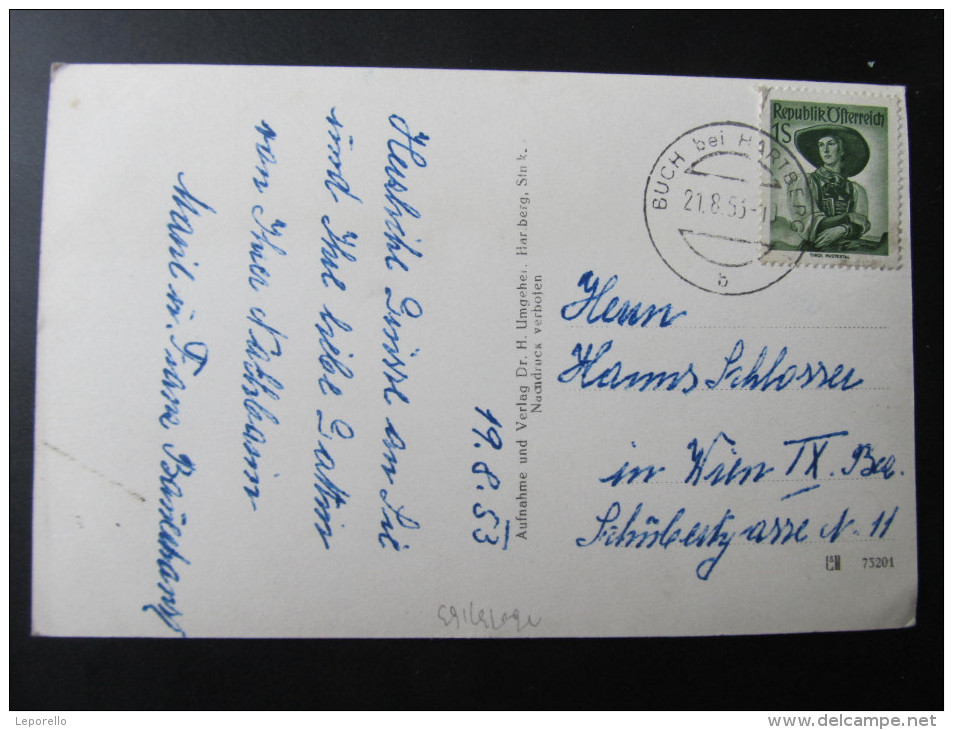 Herzliche Grüsse an Sie
und Ihre liebe Gattin
von Ihrer Nachbarin
Marie u. Franz
19. 8. 53
Aufnahme und Verlag Dr. H. Umgeher, Hartberg, Stmk.
Nachdruck verboten
Republik Österreich
1S
TIROL PUSTERTAL
BUCH bei HARTBERG
21.8.53-1
b
Herrn
Hanns Schlosser
in Wien IX. Bez.
Schubertgasse N. 11
73201
Leporello
www.delcampe.net